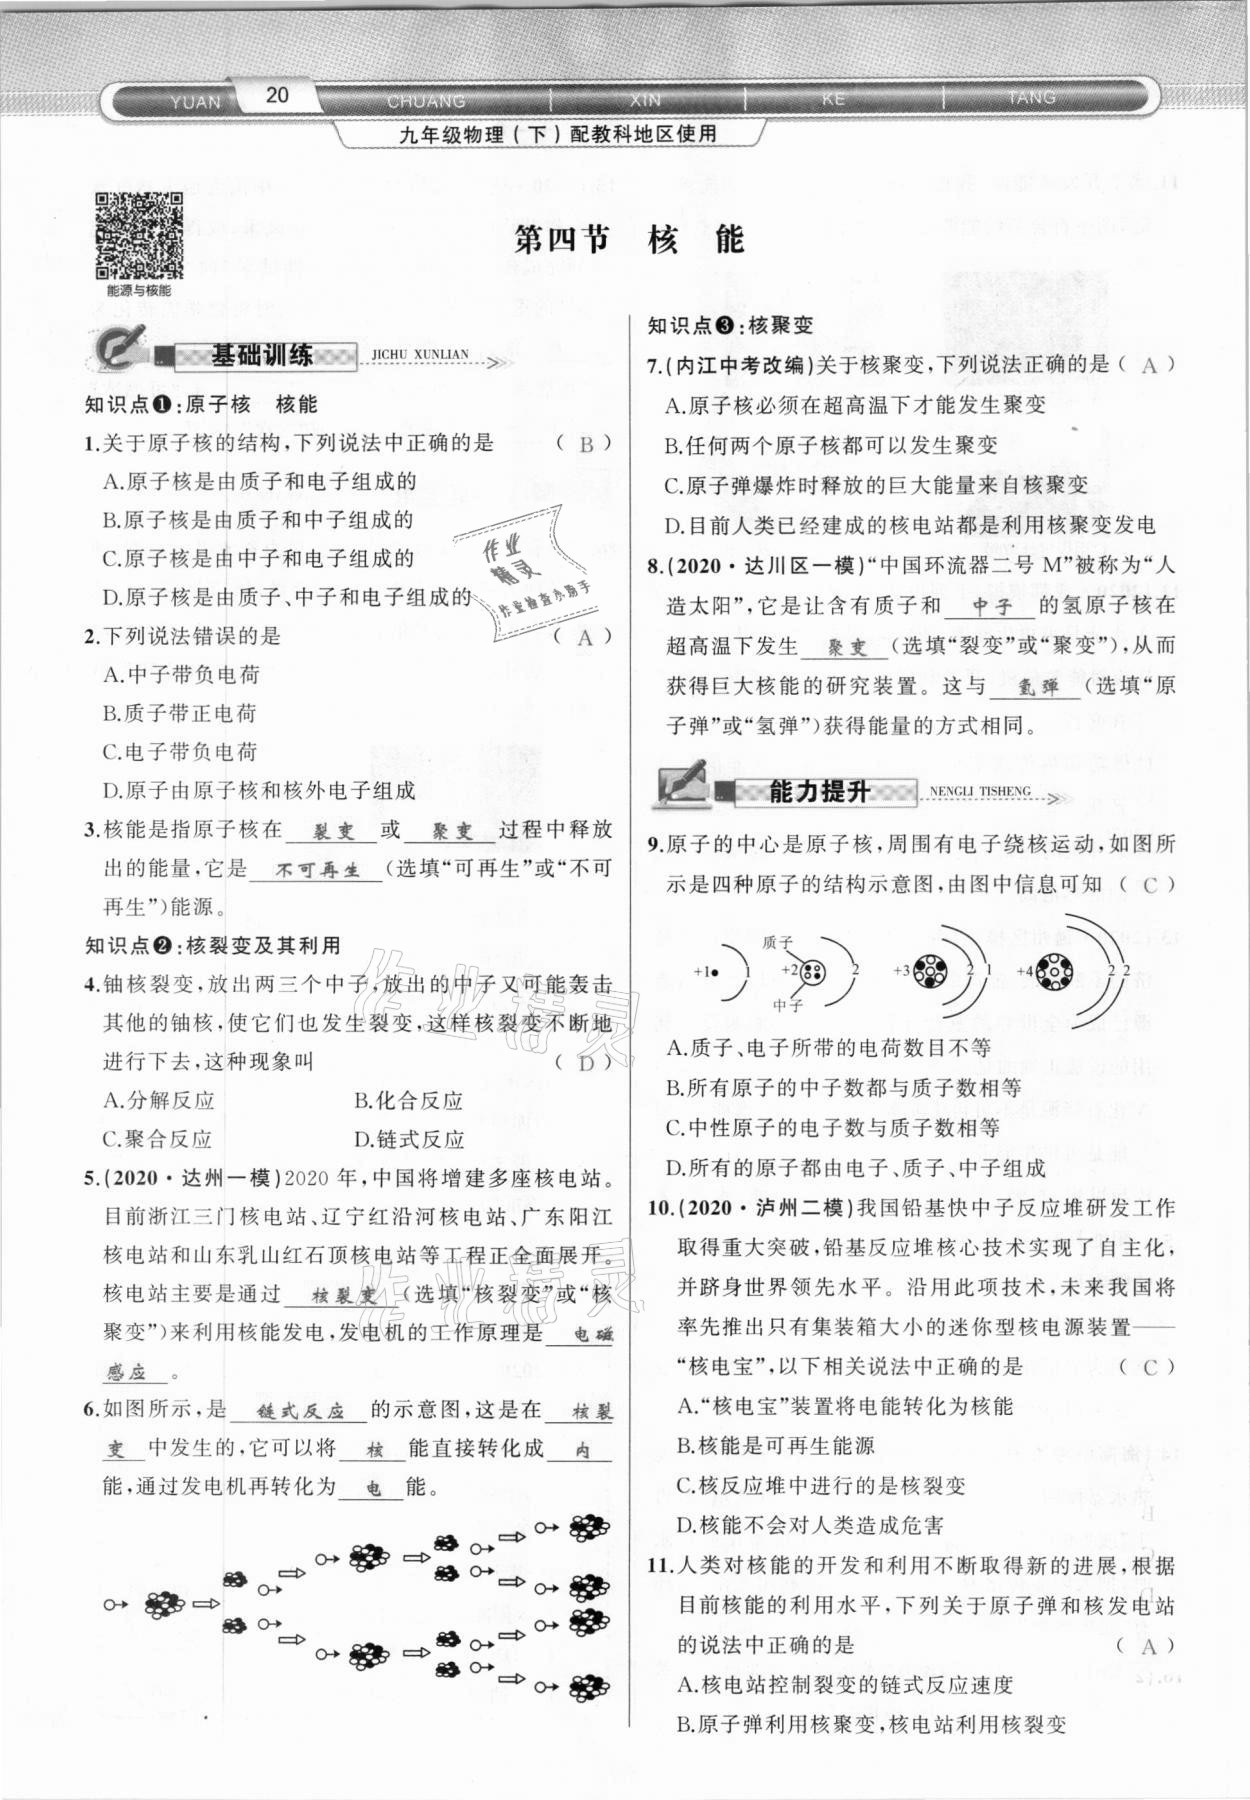 YUAN 20 CHUANG XIN KE TANG
九年级物理(下)配教科地区使用
能源与核能
第四节 核 能
基础训练 JICHU XUNLIAN
知识点❶:原子核 核能
1.关于原子核的结构,下列说法中正确的是 ( B )
A.原子核是由质子和电子组成的
B.原子核是由质子和中子组成的
C.原子核是由中子和电子组成的
D.原子核是由质子、中子和电子组成的
2.下列说法错误的是 ( A )
A.中子带负电荷
B.质子带正电荷
C.电子带负电荷
D.原子由原子核和核外电子组成
3.核能是指原子核在 裂变 或 聚变 过程中释放
出的能量,它是 不可再生 (选填“可再生”或“不可
再生”)能源。
知识点❷:核裂变及其利用
4.铀核裂变,放出两三个中子,放出的中子又可能轰击
其他的铀核,使它们也发生裂变,这样核裂变不断地
进行下去,这种现象叫 ( D )
A.分解反应 B.化合反应
C.聚合反应 D.链式反应
5.(2020·达州一模)2020年,中国将增建多座核电站。
目前浙江三门核电站、辽宁红沿河核电站、广东阳江
核电站和山东乳山红石顶核电站等工程正全面展开。
核电站主要是通过 核裂变 (选填“核裂变”或“核
聚变”)来利用核能发电,发电机的工作原理是 电磁
感应 。
6.如图所示,是 链式反应 的示意图,这是在 核裂
变 中发生的,它可以将 核 能直接转化成 内
能,通过发电机再转化为 电 能。
知识点❸:核聚变
7.(内江中考改编)关于核聚变,下列说法正确的是( A )
A.原子核必须在超高温下才能发生聚变
B.任何两个原子核都可以发生聚变
C.原子弹爆炸时释放的巨大能量来自核聚变
D.目前人类已经建成的核电站都是利用核聚变发电
8.(2020·达川区一模)“中国环流器二号M”被称为“人
造太阳”,它是让含有质子和 中子 的氢原子核在
超高温下发生 聚变 (选填“裂变”或“聚变”),从而
获得巨大核能的研究装置。这与 氢弹 (选填“原
子弹”或“氢弹”)获得能量的方式相同。
能力提升 NENGLI TISHENG
9.原子的中心是原子核,周围有电子绕核运动,如图所
示是四种原子的结构示意图,由图中信息可知 ( C )
质子
+1 1 +2 2 +3 2 1 +4 2 2
中子
A.质子、电子所带的电荷数目不等
B.所有原子的中子数都与质子数相等
C.中性原子的电子数与质子数相等
D.所有的原子都由电子、质子、中子组成
10.(2020·泸州二模)我国铅基快中子反应堆研发工作
取得重大突破,铅基反应堆核心技术实现了自主化,
并跻身世界领先水平。沿用此项技术,未来我国将
率先推出只有集装箱大小的迷你型核电源装置——
“核电宝”,以下相关说法中正确的是 ( C )
A.“核电宝”装置将电能转化为核能
B.核能是可再生能源
C.核反应堆中进行的是核裂变
D.核能不会对人类造成危害
11.人类对核能的开发和利用不断取得新的进展,根据
目前核能的利用水平,下列关于原子弹和核发电站
的说法中正确的是 ( A )
A.核电站控制裂变的链式反应速度
B.原子弹利用核聚变,核电站利用核裂变
作业
精灵
作业检查小助手
作业精灵
作业精灵